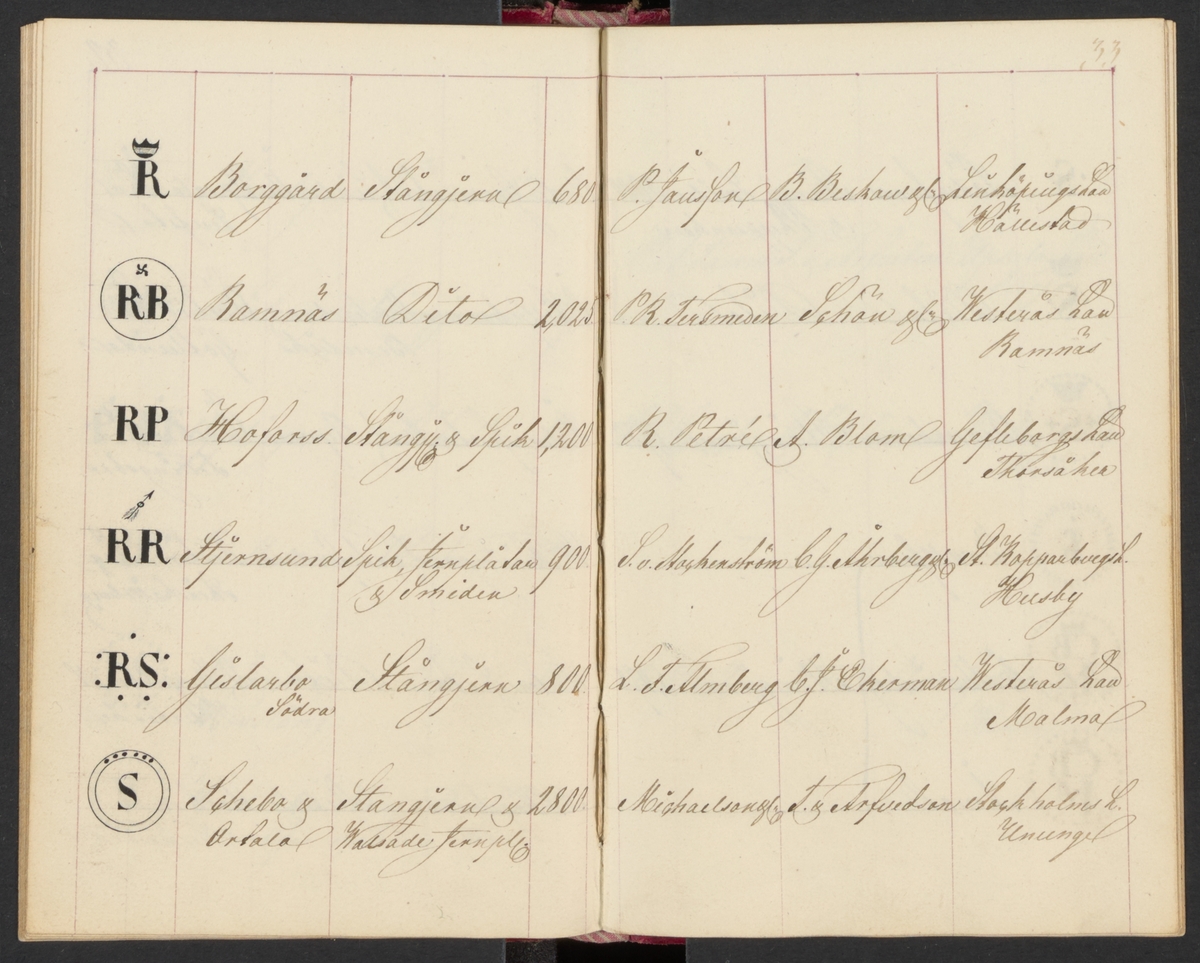 33
R Borggård Stångjern 680 P. Jansson B. Beskow & C Linköpings Län
Hällestad
RB Ramnäs Dito 2,025 P. R. Tersmeden Schön & C Westerås Län
Ramnäs
RP Hofors Stångj. & Spik 1,200 R. Petré A. Blom Gefleborgs Län
Thorsåker
RR Stjernsund Spik, Jernplåtar 900 S. v. Stockenström C. G. Åhrberg & C St. Kopparbergs L.
& Smiden Husby
RS Gislarbo Stångjern 800 L. F. Almberg C. J. Ekerman Westerås Län
Södra Malma
S Schebo & Stangjern & 2800 Michaelson & C T. & Arfvedson Stockholms L.
Ortala Walsade Jernpl. Ununge